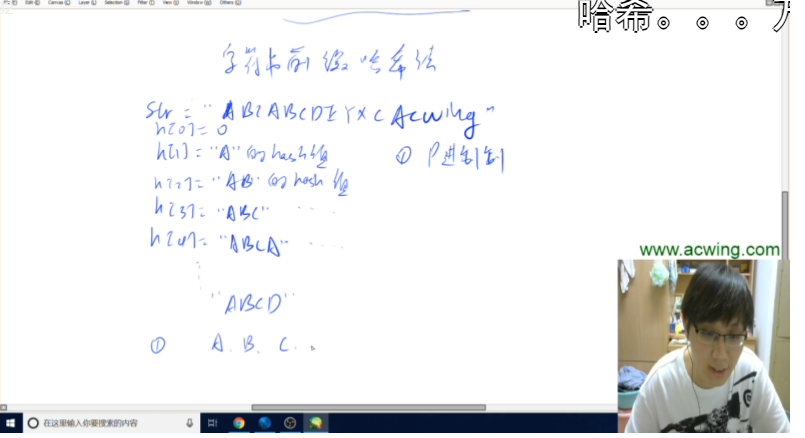 Edit Canvas Layer Selection Filter View Window Others
哈希。。。
字符串前缀哈希法
str = "ABCABCDEYXCAcwing"
h[0] = 0
h[1] = "A" 的hash值
① P进制
h[2] = "AB" 的hash 值
h[3] = "ABC" ......
h[4] = "ABCA" ....
www.acwing.com
"ABCD"
① A. B. C.
在这里输入你要搜索的内容